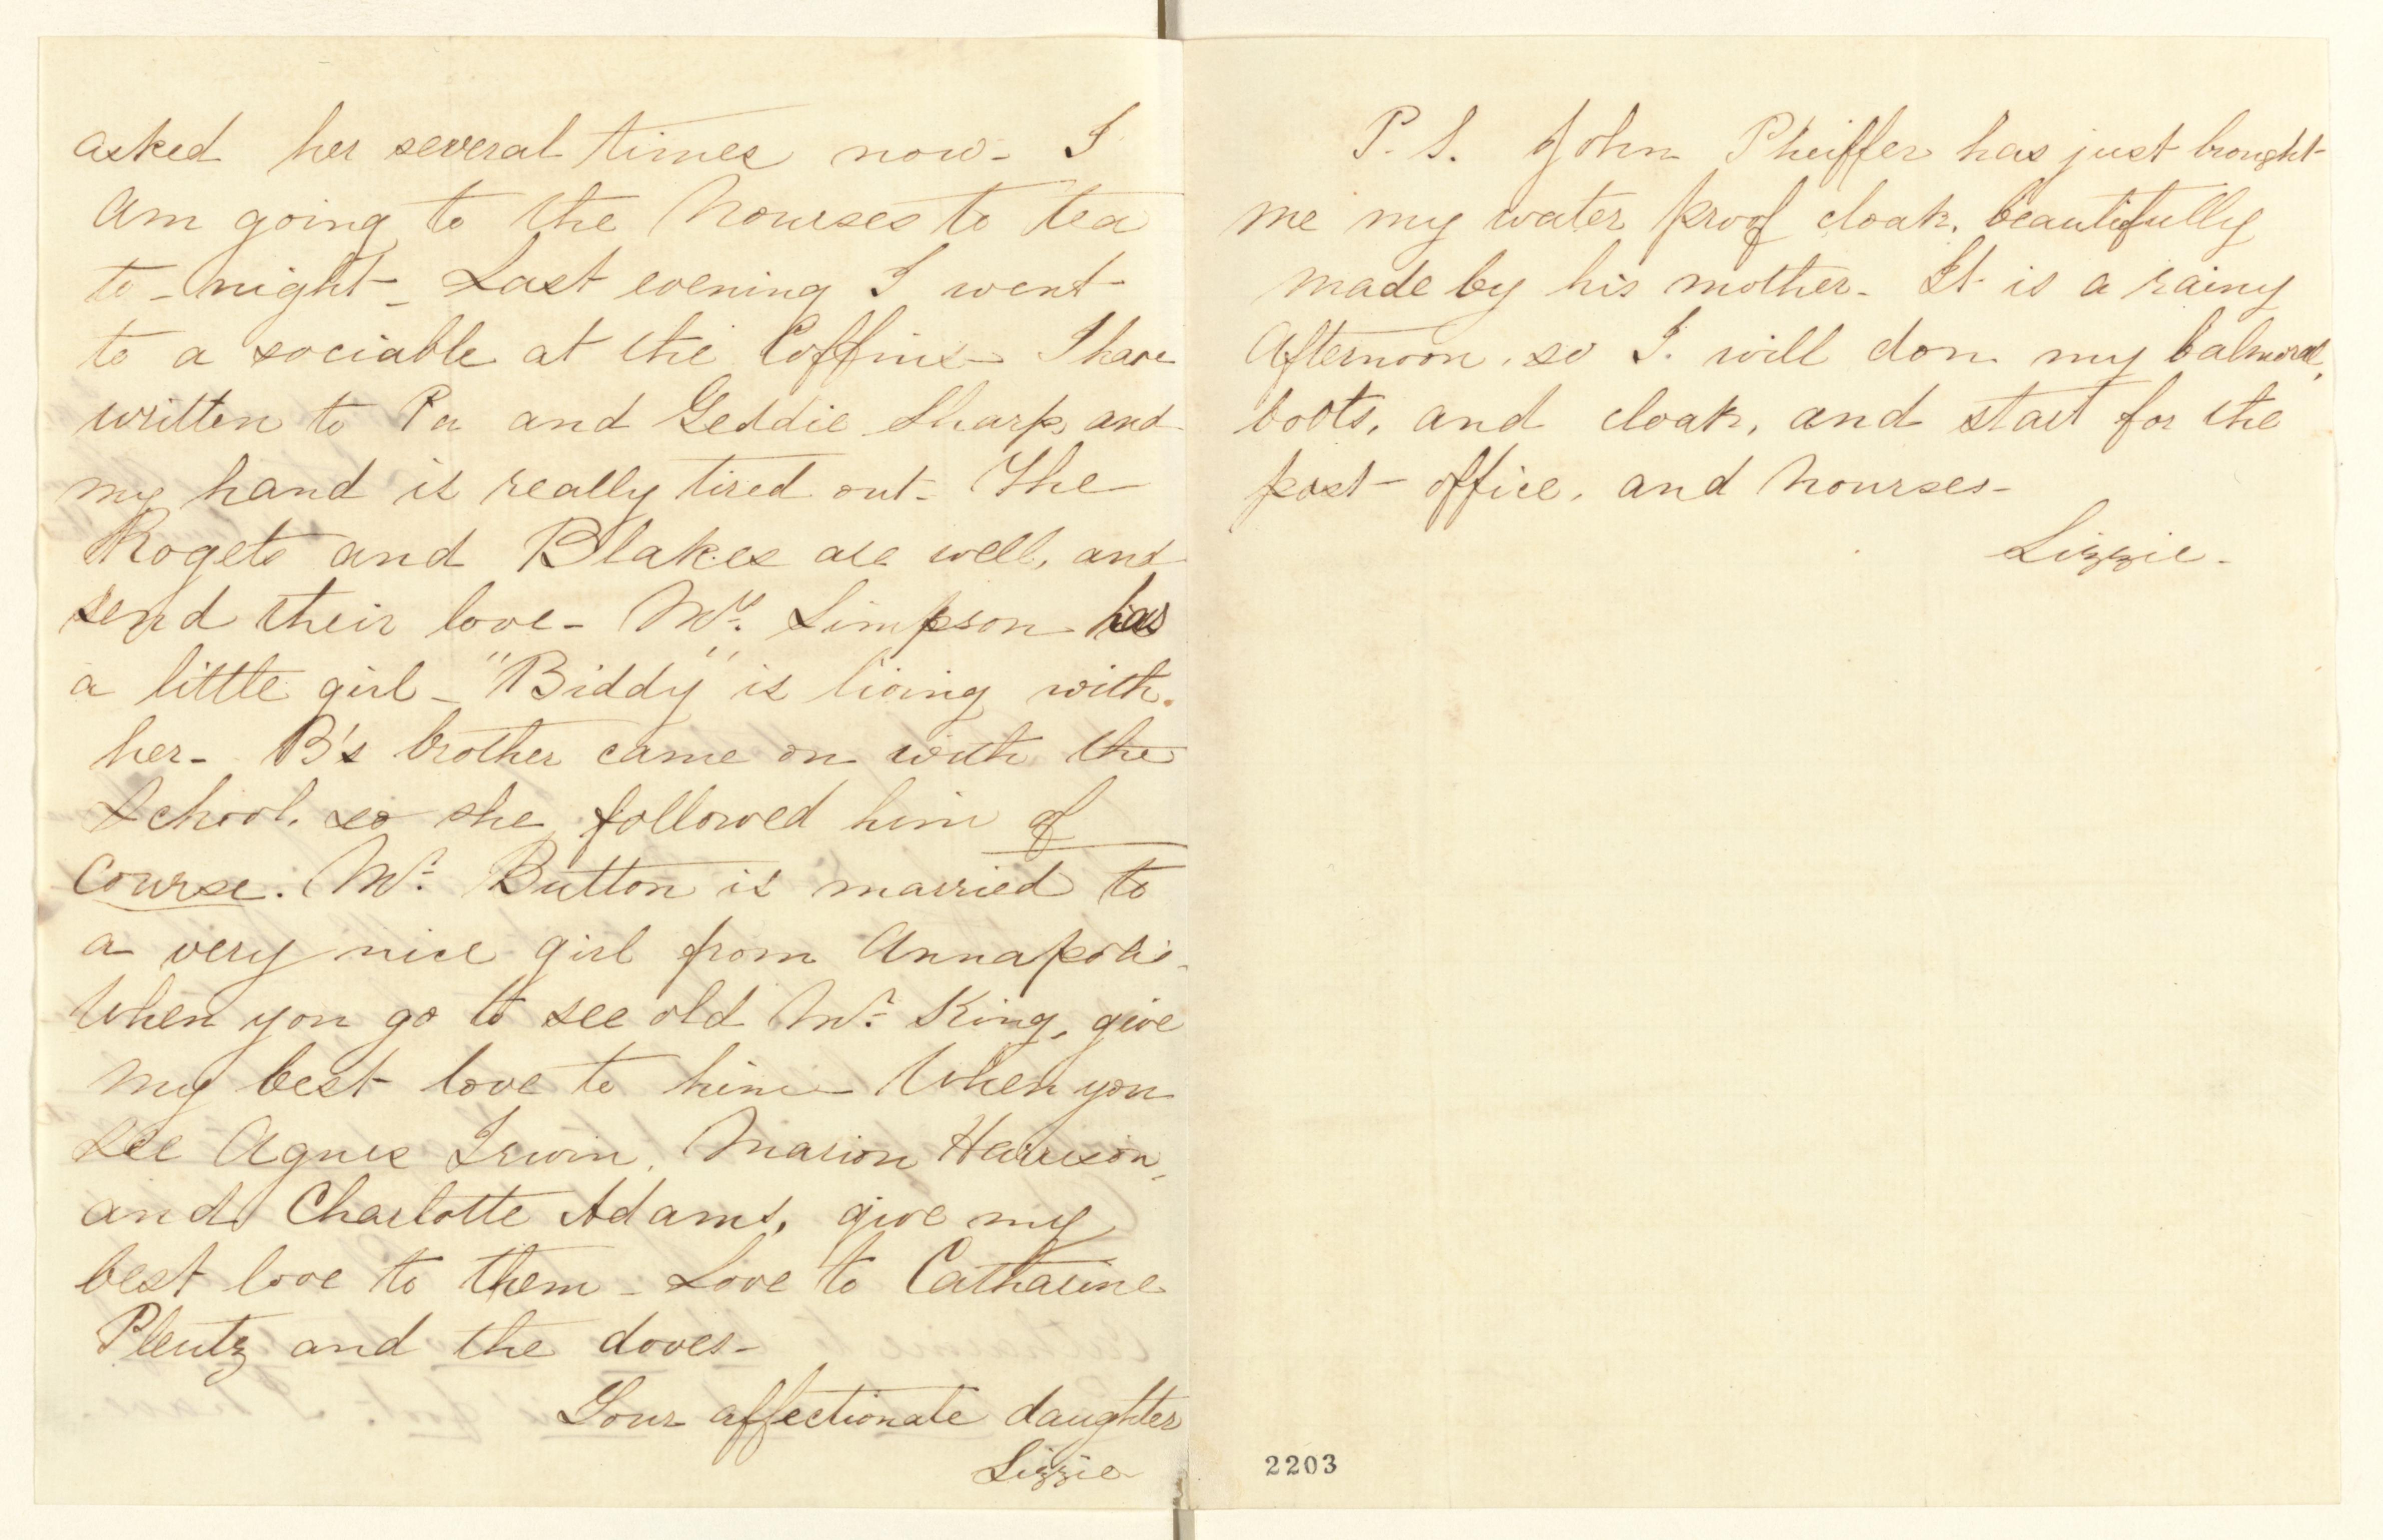 asked her several times now - I
am going to the Nourses to tea
to-night - Last evening I went
to a sociable at the Coffins - I have
written to Pa and Geddie Sharp and
my hand is really tired out - The
Rogets and Blakes are well, and
send their love - Mrs. Simpson has
a little girl - "Biddy" is living with
her - B's brother came on with the
School, so she followed him of
course. Mr. Button is married to
a very nice girl from Annapolis -
When you go to see old Mr. King, give
my best love to him - When you
see Agnes Irwin, Marion Harrison,
and Charlotte Adams, give my
best love to them - Love to Catharine
Plentz and the doves -
Your affectionate daughter
Lizzie
P.S. John Pheiffer has just brought
me my water proof cloak, beautifully
made by his mother - It is a rainy
afternoon, so I will don my balmoral,
boots, and cloak, and start for the
post-office, and Nourses -
Lizzie -
2203